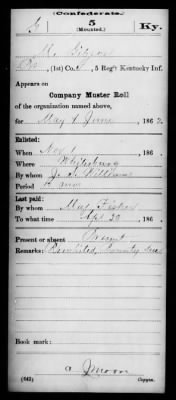 (Confederate.)
G 5 Ky.
(Mounted.)
M. Gibson
Co., (1st) Co., 5 Reg't Kentucky Inf.
Appears on
Company Muster Roll
of the organization named above,
for May & June, 1862.
Enlisted:
When Nov 1, 186
Where Whitesburg
By whom J. S. Williams
Period
Last paid:
By whom Maj. Fisher
To what time Apl 30, 186
Present or absent Present
Remarks: Bounty due
Book mark:
(642) Copyist.